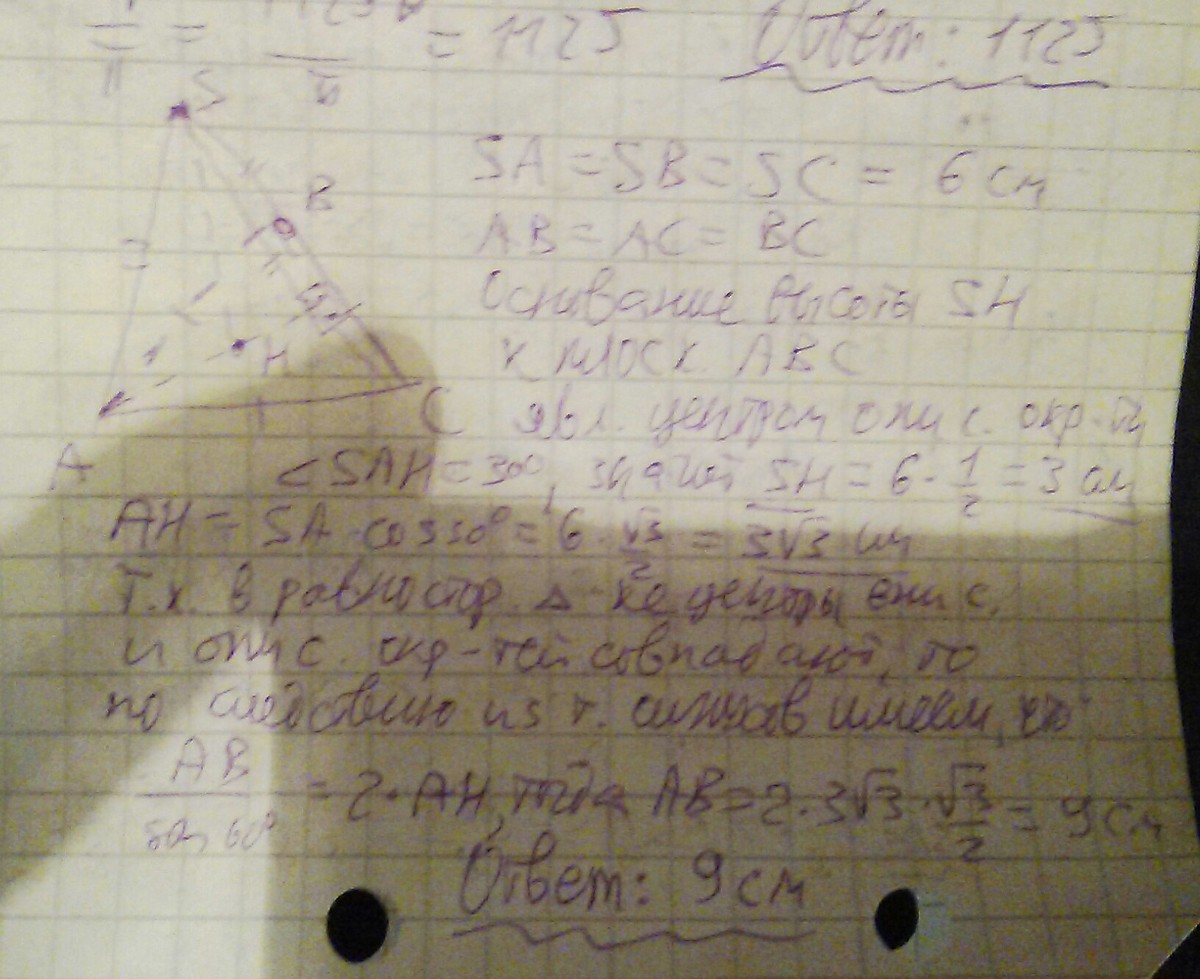 = = 1125 Ответ: 1125
S
B
H
A
C
SA = SB = SC = 6 см
AB = AC = BC
Основание высоты SH
к плоск. ABC
явл. центром опис. окр-ти
∠SAH = 30°, значит SH = 6 · 1/2 = 3 см
AH = SA · cos 30° = 6 · √3/2 = 3√3 см
Т.к. в равностор. Δ-ке центры впис.
и опис. окр-тей совпадают, то
по следствию из т. синусов имеем, что
AB/sin 60° = 2 · AH, тогда AB = 2 · 3√3 · √3/2 = 9 см
Ответ: 9 см